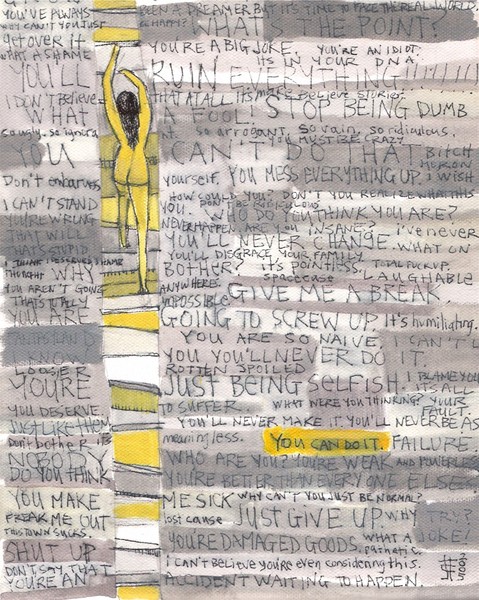 YOU'VE ALWAYS BEEN A DREAMER BUT IT'S TIME TO FACE THE REAL WORLD.
WHY CAN'T YOU JUST BE HAPPY? WHAT'S THE POINT?
get over it YOU'RE A BIG JOKE. YOU'RE AN IDIOT.
WHAT A SHAME IT'S IN YOUR DNA.
YOU'LL RUIN EVERYTHING!!!!!!!
I DON'T Believe THAT AT ALL. IT'S MAKE BELIEVE STORIES.
WHAT A FOOL. STOP BEING DUMB
so ugly. so ignorant. so arrogant, so vain, so ridiculous.
YOU MUST BE CRAZY
YOU CAN'T DO THAT Bitch
MORON
Don't embarrass yourself. YOU MESS EVERYTHING UP. I WISH
HOW COULD YOU? DON'T YOU REALIZE WHAT THIS
I CAN'T STAND YOU. WHO DO YOU THINK YOU ARE?
YOU'RE WRONG
NEVER HAPPEN. ARE YOU INSANE? I've never
THAT WILL YOU'LL NEVER CHANGE. WHAT ON
THAT'S STUPID YOU'LL DISGRACE YOUR FAMILY
WHY BOTHER? it's pointless. TOTAL FUCKUP.
LAUGHABLE
YOU AREN'T GOING ANYWHERE.
THAT'S TOTALLY IMPOSSIBLE GIVE ME A BREAK.
YOU ARE GOING TO SCREW UP. It's humiliating.
YOU ARE SO NAIVE. I CAN'T
KNOW YOU YOU'LL NEVER DO IT.
LOOSER ROTTEN SPOILED I BLAME YOU
YOU'RE JUST BEING SELFISH. IT'S ALL
YOU DESERVE TO SUFFER. WHAT WERE YOU THINKING? YOUR FAULT.
JUST LIKE THEM YOU'LL NEVER MAKE IT. YOU'LL NEVER BE AS
Don't bother it's meaningless. YOU CAN DO IT. FAILURE.
NOBODY WHO ARE YOU? YOU'RE WEAK AND POWERLESS
DO YOU THINK YOU'RE BETTER THAN EVERYONE ELSE
YOU MAKE ME SICK WHY CAN'T YOU JUST BE NORMAL?
FREAK ME OUT lost cause JUST GIVE UP. WHY TRY?
THIS TOWN SUCKS. YOU'RE DAMAGED GOODS. WHAT A JOKE!
SHUT UP pathetic.
I can't believe you're even considering this.
DON'T SAY THAT
YOU'RE AN ACCIDENT WAITING TO HAPPEN.